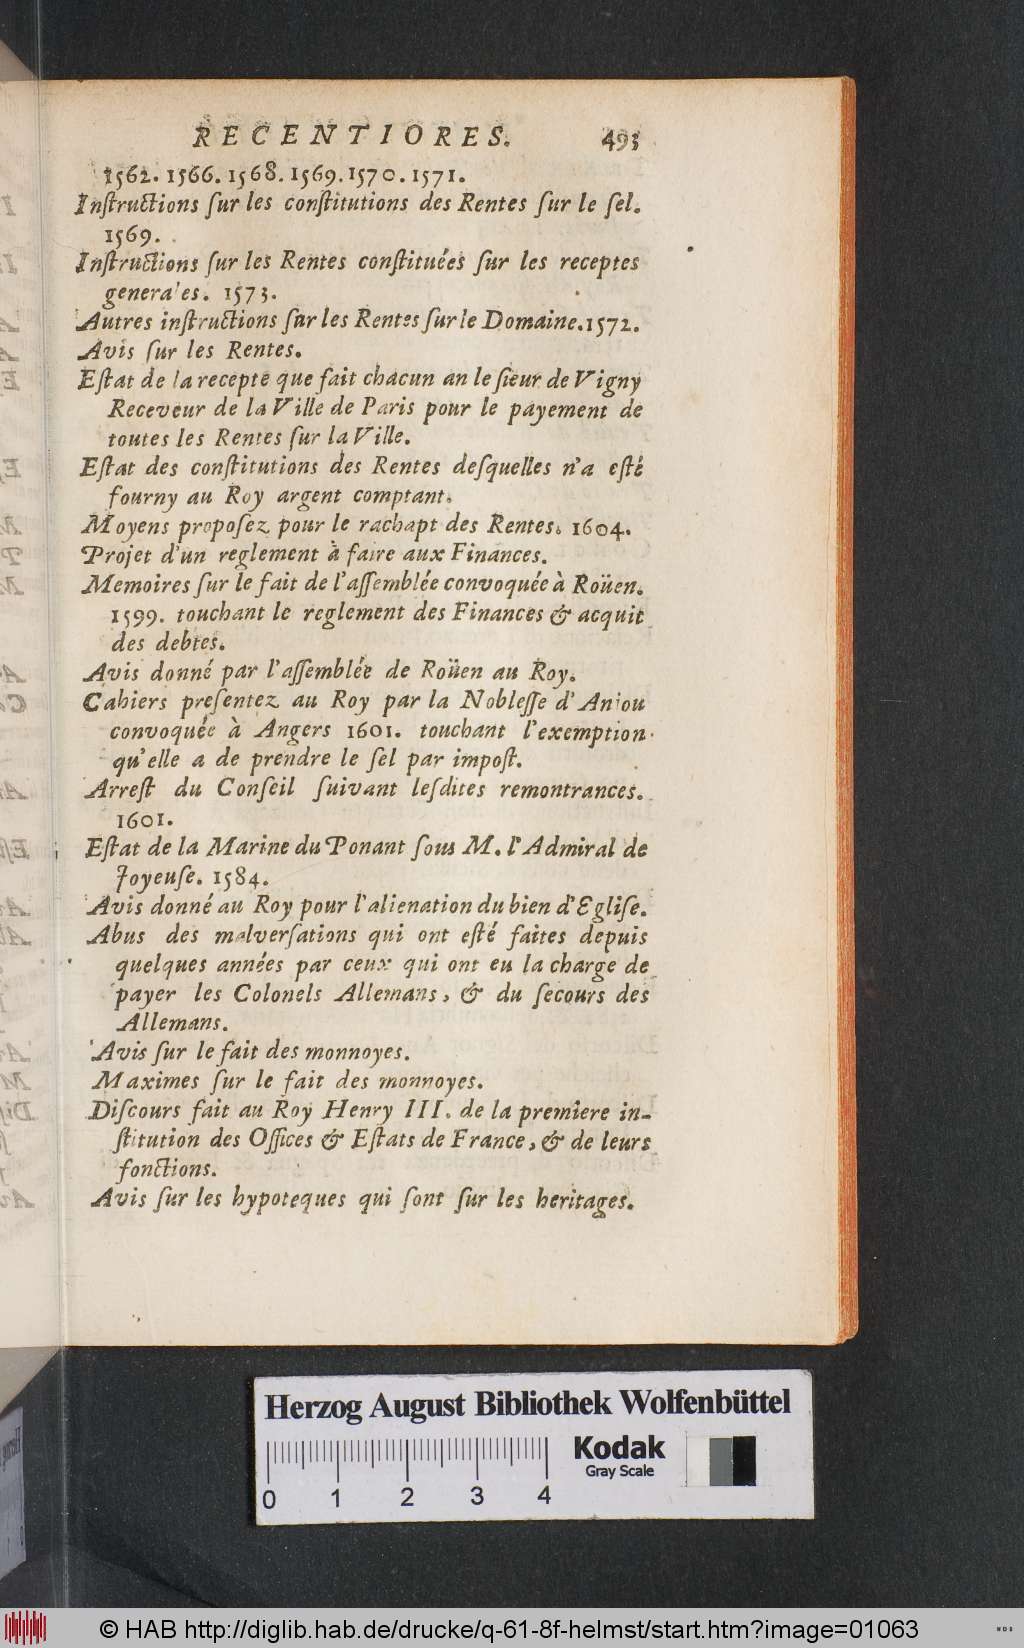 RECENTIORES. 493
1562. 1566. 1568. 1569. 1570. 1571.
Inſtructions ſur les conſtitutions des Rentes ſur le ſel.
1569.
Inſtructions ſur les Rentes conſtituées ſur les receptes
generales. 1573.
Autres inſtructions ſur les Rentes ſur le Domaine. 1572.
Avis ſur les Rentes.
Eſtat de la recepte que fait chacun an le ſieur de Vigny
Receveur de la Ville de Paris pour le payement de
toutes les Rentes ſur la Ville.
Eſtat des conſtitutions des Rentes deſquelles n'a eſté
fourny au Roy argent comptant.
Moyens propoſez pour le rachapt des Rentes. 1604.
Projet d'un reglement à faire aux Finances.
Memoires ſur le fait de l'aſſemblée convoquée à Roüen.
1599. touchant le reglement des Finances & acquit
des debtes.
Avis donné par l'aſſemblée de Roüen au Roy.
Cahiers preſentez au Roy par la Nobleſſe d'Aniou
convoquée à Angers 1601. touchant l'exemption
qu'elle a de prendre le ſel par impoſt.
Arreſt du Conſeil ſuivant leſdites remontrances.
1601.
Eſtat de la Marine du Ponant ſous M. l'Admiral de
Joyeuſe. 1584.
Avis donné au Roy pour l'alienation du bien d'Egliſe.
Abus des malverſations qui ont eſté faites depuis
quelques années par ceux qui ont eu la charge de
payer les Colonels Allemans, & du ſecours des
Allemans.
Avis ſur le fait des monnoyes.
Maximes ſur le fait des monnoyes.
Diſcours fait au Roy Henry III. de la premiere in-
ſtitution des Offices & Eſtats de France, & de leurs
fonctions.
Avis ſur les hypoteques qui ſont ſur les heritages.
Herzog August Bibliothek Wolfenbüttel
Kodak
Gray Scale
0 1 2 3 4
© HAB http://diglib.hab.de/drucke/q-61-8f-helmst/start.htm?image=01063